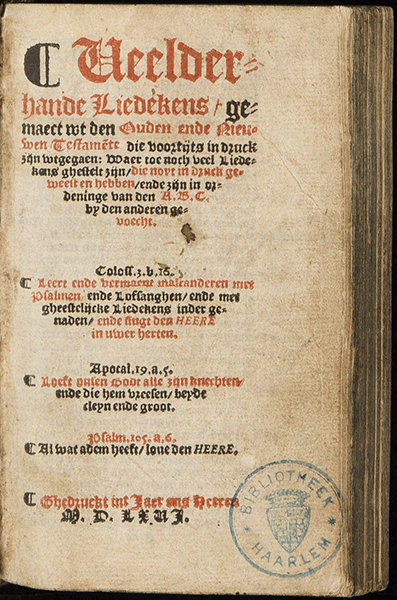 ¶ Veelder-
hande Liedekens / ge-
maect wt den Ouden ende Nieu-
wen Testamēte die voortijts in druck
zijn wtgegaen: Waer toe noch veel Liede-
kens ghestelt zijn / die noyt in druck ge-
weest en hebben / ende zijn in or-
deninge van den A. B. C.
by den anderen ge-
voecht.
Coloss. 3. b. 16.
¶ Leert ende vermaent malcanderen met
Psalmen / ende Lofsanghen / ende met
gheestelijcke Liedekens inder ge-
naden / ende singt den HEERE
in uwer herten.
Apocal. 19. a. 5.
¶ Loeft onsen Godt alle zijn knechten /
ende die hem vreesen / beyde
cleyn ende groot.
Psalm. 105. a. 6.
¶ Al wat adem heeft / loue den HEERE.
¶ Ghedruckt int Jaer ons Heeren
M. D. LXVI.
BIBLIOTHEEK
HAARLEM